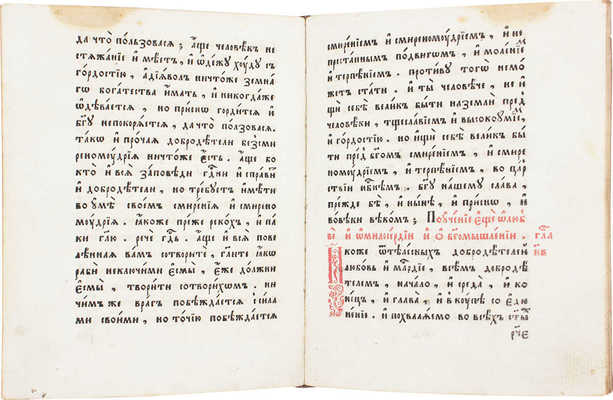 да что пользовася ; аще человѣкъ не
стяжанїе и҆мѣетъ , и҆ одежу худу съ
гордостїю , адїяволъ ничтоже земна
гѡ богатства и҆мать , и҆ никогдаже
ѡдѣвается , но приснѡ гордится и҆
бг҃у непокоряется , да что ползовася .
такѡ и҆ прочая добродѣтели безсми
реномоудрїя ничтоже є҆сть . аще бо
кто и҆ вся заповѣди гд҇ни и҆ справи
и҆ добродѣтели , но требуетъ и҆мѣти
во умѣ своемъ смиренїя и҆ смирено
моудрїя . ꙗкоже преже рекохъ , и҆ па
ки гл҃ю . рече гд҇ь . аще и҆ вся пове
лѣнная вамъ сотворите , гл҃ите ꙗкѡ
раби неключими є҆смы , є҆же должни
є҆смы , творити сотворихомъ . ни
чимъ же врагъ побѣждается и҆ сила
ми своими , но точїю побѣждается
смиренїемъ и҆ смиреномоудрїемъ , и҆ не
престаннымъ подвигомъ , и҆ моленїе
и҆ терпѣнїемъ . противу тогѡ немо
жетъ стати . и҆ ты человѣче , не и҆
щи себѣ велїкъ быти наземли пред
человѣки , тщеславїемъ и҆ высокоумїе ,
и҆ гордостїю . но и҆щи себѣ великъ бы
ти пред бг҃омъ смиренїемъ , и҆ смире
номоудрїемъ , и҆ терпѣнїемъ , во цар
ствїи нб҇нѣмъ . бг҃у нашему слава ,
прежде бѣ , и҆ нынѣ , и҆ приснѡ , и҆
вовѣки вѣкомъ ; Поученїе є҆ще ѡ любв
и҆ и҆ ѡ милосердїи и҆ ѡ бг҃омышленїи . гла н҃в
Ꙗкоже ѿ тѣлесныхъ добродѣтелей
любовь и҆ мл҇рдїе , всѣмъ добродѣ
телемъ , начало , и҆ среда , и҆ ко
нецъ , и҆ глава , и҆ вкупѣ соедин
ненїю . и҆ похваляемо во всѣхъ ст҃ы
рч҃е